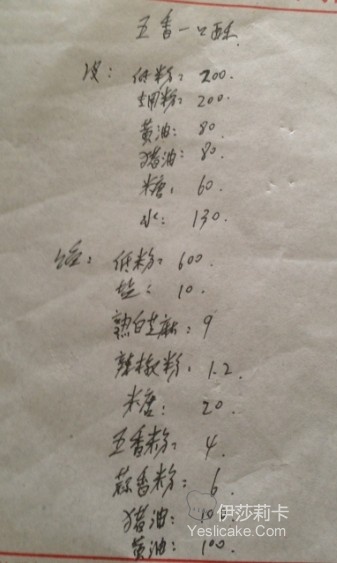 五香一口酥
皮：低粉：200.
中粉：200.
黄油：80
猪油：80.
米唐：60
水：130.
馅：低粉：600.
盐：10.
熟白芝麻：9
辣椒粉：1.2.
米唐：20.
五香粉：4.
蒜香粉：6.
猪油：100.
黄油：100.
伊莎莉卡
Yeslicake.Com